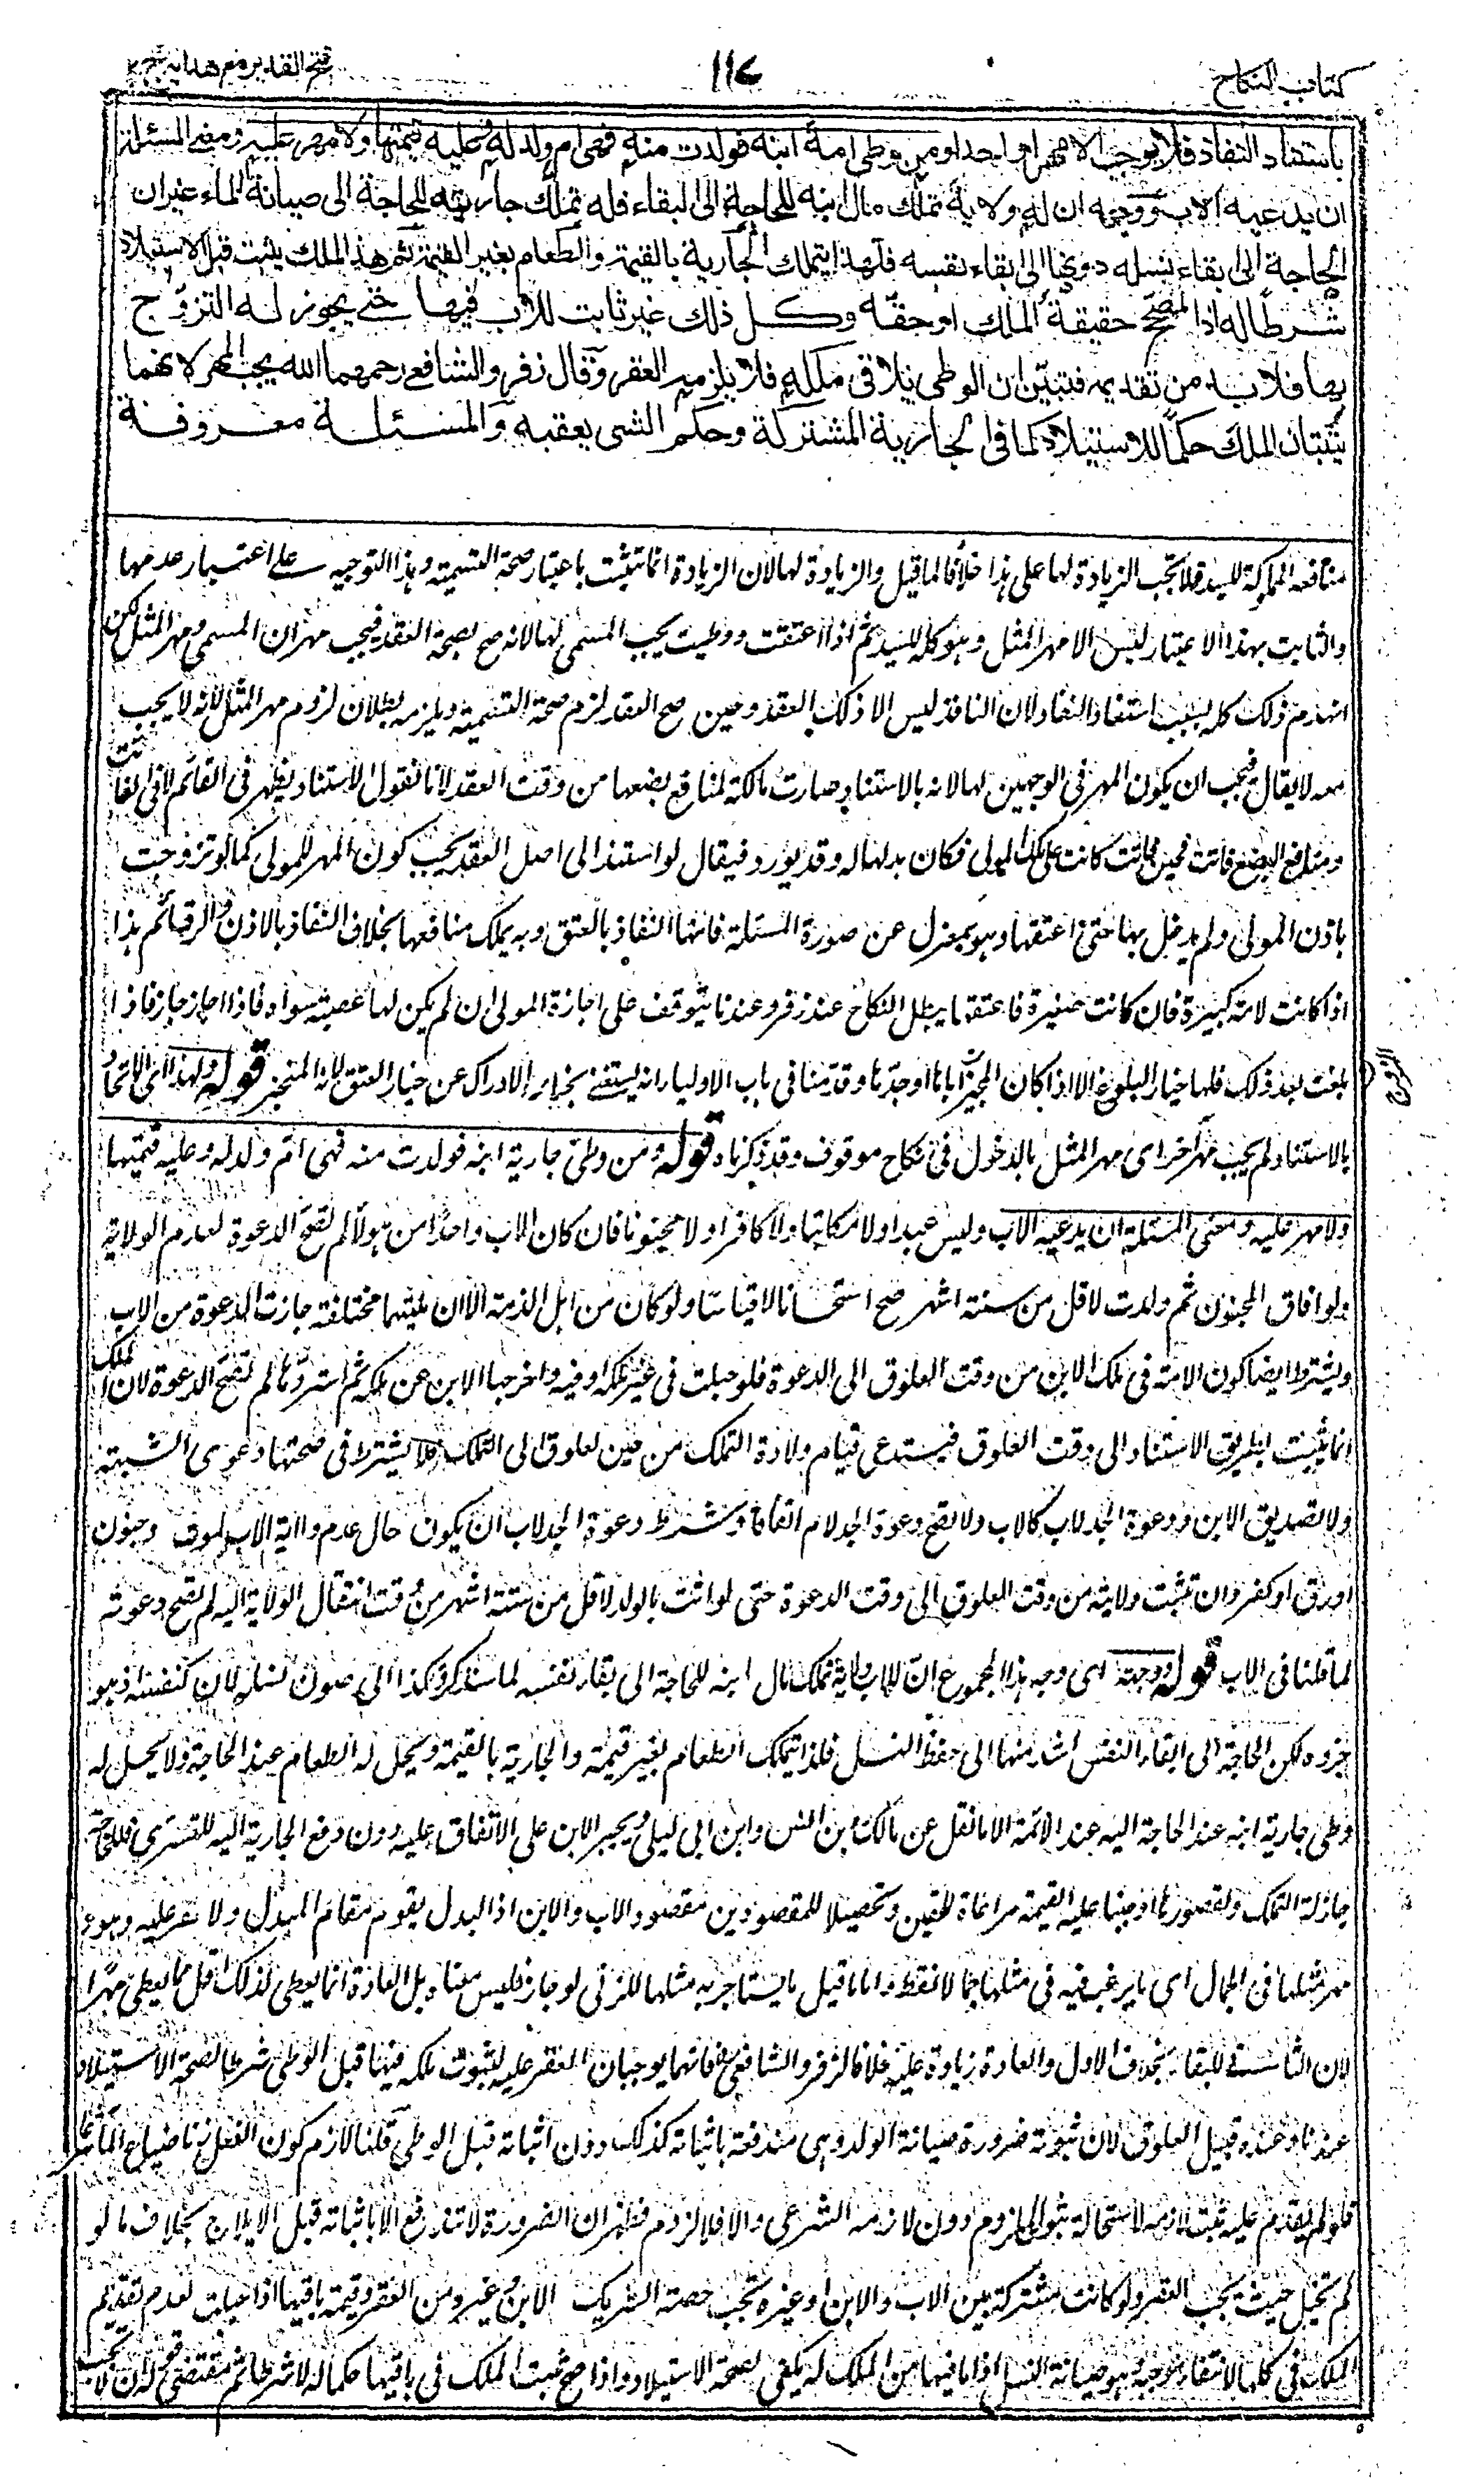 كتاب النكاح
١١٧
فتح القدير مع هدايه ج ٢
باستناد النفاذ فلا يوجب الا مهرا واحدا ومن وطى امة ابنه فولدت منه فهى ام ولد له وعليه قيمتها ولا مهر عليه ومعنى المسئلة
ان يدعيه الاب ووجهه ان له ولاية تملك مال ابنه للحاجة الى البقاء فله تملك جاريته للحاجة الى صيانة الماء غير ان
الحاجة الى ابقاء نسله دونها الى ابقاء نفسه فلهذا يتملك الجارية بالقيمة والطعام بغير القيمة ثم هذا الملك يثبت قبل الاستيلاد
شرطا له اذ المصحح حقيقة الملك او حقه وكل ذلك غير ثابت للاب فيها حتى يجوز له التزوج
بها فلا بد من تقديمه فتبين ان الوطى يلاقى ملكه فلا يلزمه العقر وقال زفر والشافعى رحمهما الله يجب المهر لانهما
يثبتان الملك حكما للاستيلاد كما فى الجارية المشتركة وحكم الشى يعقبه والمسئلة معروفة
منافعه المملوكة للسيد فلا تجب الزيادة لها على هذا خلافا لما قيل والزيادة لها لان الزيادة انما تثبت باعتبار صحة التسمية وهذا التوجيه على اعتبار عدمها
والثابت بهذا الاعتبار ليس الا مهر المثل وهو كله للسيد ثم اذا اعتقت ووطيت يجب المسمى لها لانه صح بصحة العقد فيجب مهران المسمى ومهر المثل لكن
انهدم ذلك كله بسبب استناد النفاد لان النافذ ليس الا ذلك العقد وحين صح العقد لزم صحة التسمية ويلزمه بطلان لزوم مهر المثل لانه لا يجب
معه لا يقال فيجب ان يكون المهر فى الوجهين لها لانه بالاستناد صارت مالكة لمنافع بضعها من وقت العقد لانا نقول الاستناد يظهر فى القائم لا فى الفائت
ومنافع البضع فاتت فحين فاتت كانت على ملك المولى فكان بدلها له وقد يورد فيقال لو استند الى اصل العقد يجب كون المهر للمولى كما لو تزوجت
باذن المولى ولم يدخل بها حتى اعتقها وهو بمعزل عن صورة المسئلة فانها النفاذ بالعتق وبه يملك منافعها بخلاف النفاذ بالاذن والرق قائم هذا
اذا كانت لامة كبيرة فان كانت صغيرة فاعتقها يبطل النكاح عند زفر وعندنا يتوقف على اجازة المولى ان لم يكن لها عصبة سواه فاذا اجاز جاز فاذا
بلغت بعد ذلك فلها خيار البلوغ الا اذا كان المجيز اباها او جدها وقدمنا فى باب الاولياء انه يستغنى بخيار الادراك عن خيار العتق لانه المنجز قوله ولهذا اى الاتحاد
بالاستناد لم يجب مهر آخر اى مهر المثل بالدخول فى نكاح موقوف وقد ذكرناه قوله ومن وطى جارية ابنه فولدت منه فهى ام ولد له وعليه قيمتها
ولا مهر عليه ومعنى المسئلة ان يدعيه الاب وليس عبدا ولا مكاتبا ولا كافرا ولا مجنونا فان كان الاب واحدا من هولاء لم تصح الدعوة لعدم الولاية
ولو افاق المجنون ثم ولدت لاقل من ستة اشهر صح استحسانا لا قياسا ولو كان من اهل الذمة الا ان ملتيهما مختلفة جازت الدعوة من الاب
ويشترط ايضا كون الامة فى ملك الابن من وقت العلوق الى الدعوة فلو حبلت فى غير ملكه او فيه واخرجها الابن عن ملكه ثم استردها لم تصح الدعوة لان الملك
انما يثبت بطريق الاستناد الى وقت العلوق فيستدعى قيام ولاية التملك من حين العلوق الى التملك ولا يشترط فى صحتها دعوى الشبهة
ولا تصديق الابن ودعوة الجد لاب كالاب ولا تصح دعوة الجد لام اتفاقا وشرط دعوة الجد لاب ان يكون حال عدم ولاية الاب لموت وجنون
او رق او كفر وان تثبت ولايته من وقت العلوق الى وقت الدعوة حتى لو اتت بالولد لاقل من ستة اشهر من وقت انتقال الولاية اليه لم تصح دعوته
لما قلنا فى الاب قوله ووجهه اى وجه هذا المجموع ان للاب ولاية تملك مال ابنه للحاجة الى بقاء نفسه لما سنذكر فكذا الى صون نسله لانه كنفسه اذ هو
جزوه لكن الحاجة الى ابقاء النفس اشد منها الى حفظ النسل فلذا يتملك الطعام بغير قيمة والجارية بالقيمة ويحل له الطعام عند الحاجة ولا يحل له
وطى جارية ابنه عند الحاجة اليه عند الائمة الا ما نقل عن مالك بن انس وابن ابى ليلى ويجبر الابن على الانفاق عليه دون دفع الجارية اليه للتسرى فللحاجة
جاز له التملك ولقصورها اوجبنا عليه القيمة مراعاة للحقين وتحصيلا للمقصودين مقصود الاب والابن اذ البدل يقوم مقام المبدل ولا عقر عليه وهو
مهر مثلها فى الجمال اى ما يرغب فيه فى مثلها جمالا فقط واما ما قيل ما يستاجر به مثلها للزنى لو جاز فليس معناه بل العادة انما يعطى لذلك اقل مما يعطى مهرا
لان الثانى للبقاء بخلاف الاول والعادة زيادة عليه خلافا لزفر والشافعى فانهما يوجبان العقر عليه لثبوت ملكه فيها قبل الوطى شرطا لصحة الاستيلاد
عندنا وعنده قبيل العلوق لان ثبوته ضرورة صيانة الولد وهى مندفعة باثباته كذلك دون اثباته قبل الوطى قلنا لازم كون الفعل زنا ضياع الماء شرعا
فلو لم يقدم عليه ثبت لازمه لاستحالة ثبوت الملزوم دون لازمه الشرعى والا فلا لزوم فظهر ان الضرورة لا تندفع الا باثباته قبل الايلاج بخلاف ما لو
لم تحبل حيث يجب العقر ولو كانت مشتركة بين الاب والابن او غيره تجب حصة الشريك الابن وغيره من العقر وقيمة باقيها اذا حبلت لعدم تقديم
الملك فى كلها لانتفاء موجبه وهو صيانة النسل اذ ما فيها من الملك له يكفى لصحة الاستيلاد واذا صح ثبت الملك فى باقيها حكما له لا شرطا ثم مقتضى